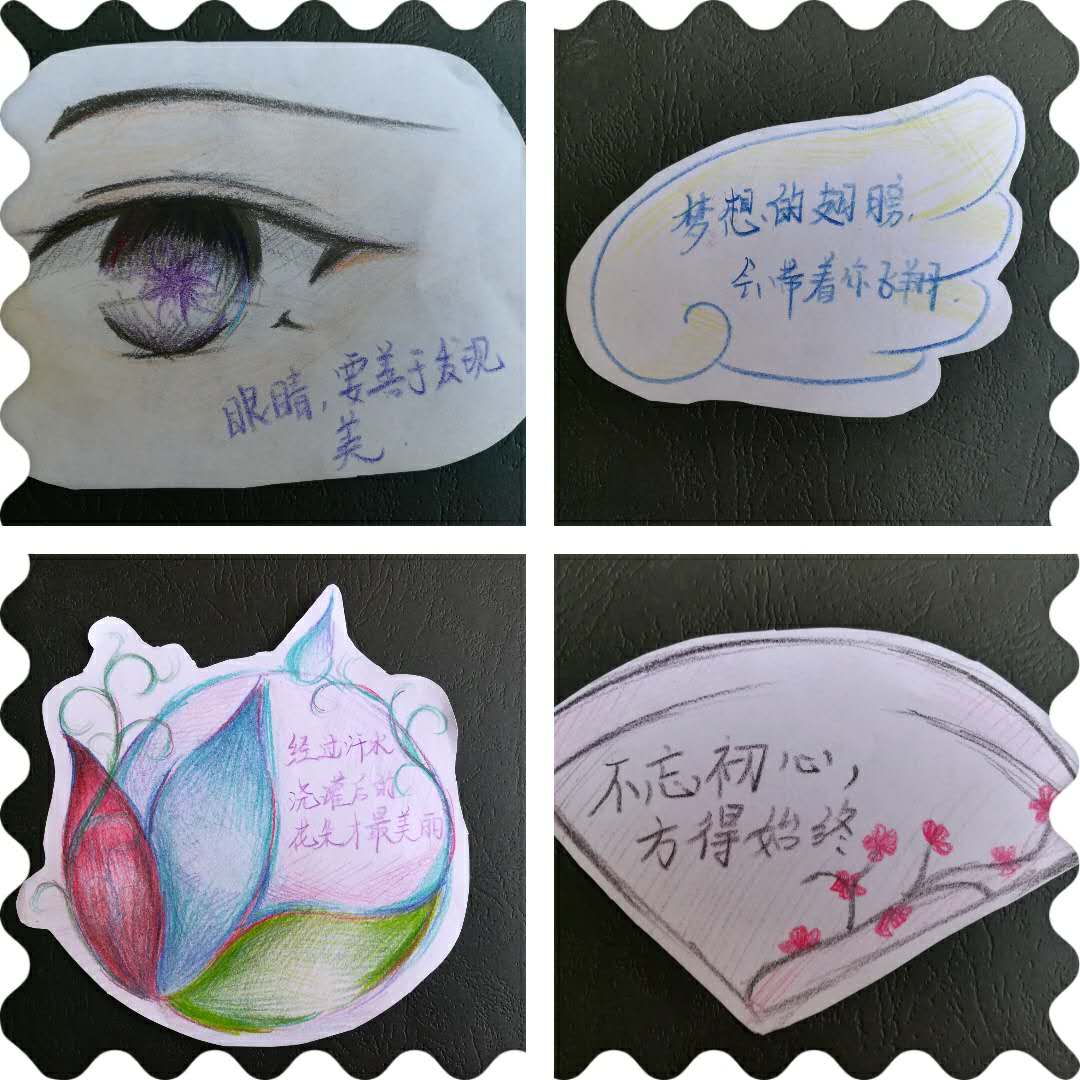 眼睛，要善于发现
美.
梦想的翅膀，
会带着你飞翔.
经过汗水
浇灌后的
花朵才最美丽
不忘初心，
方得始终